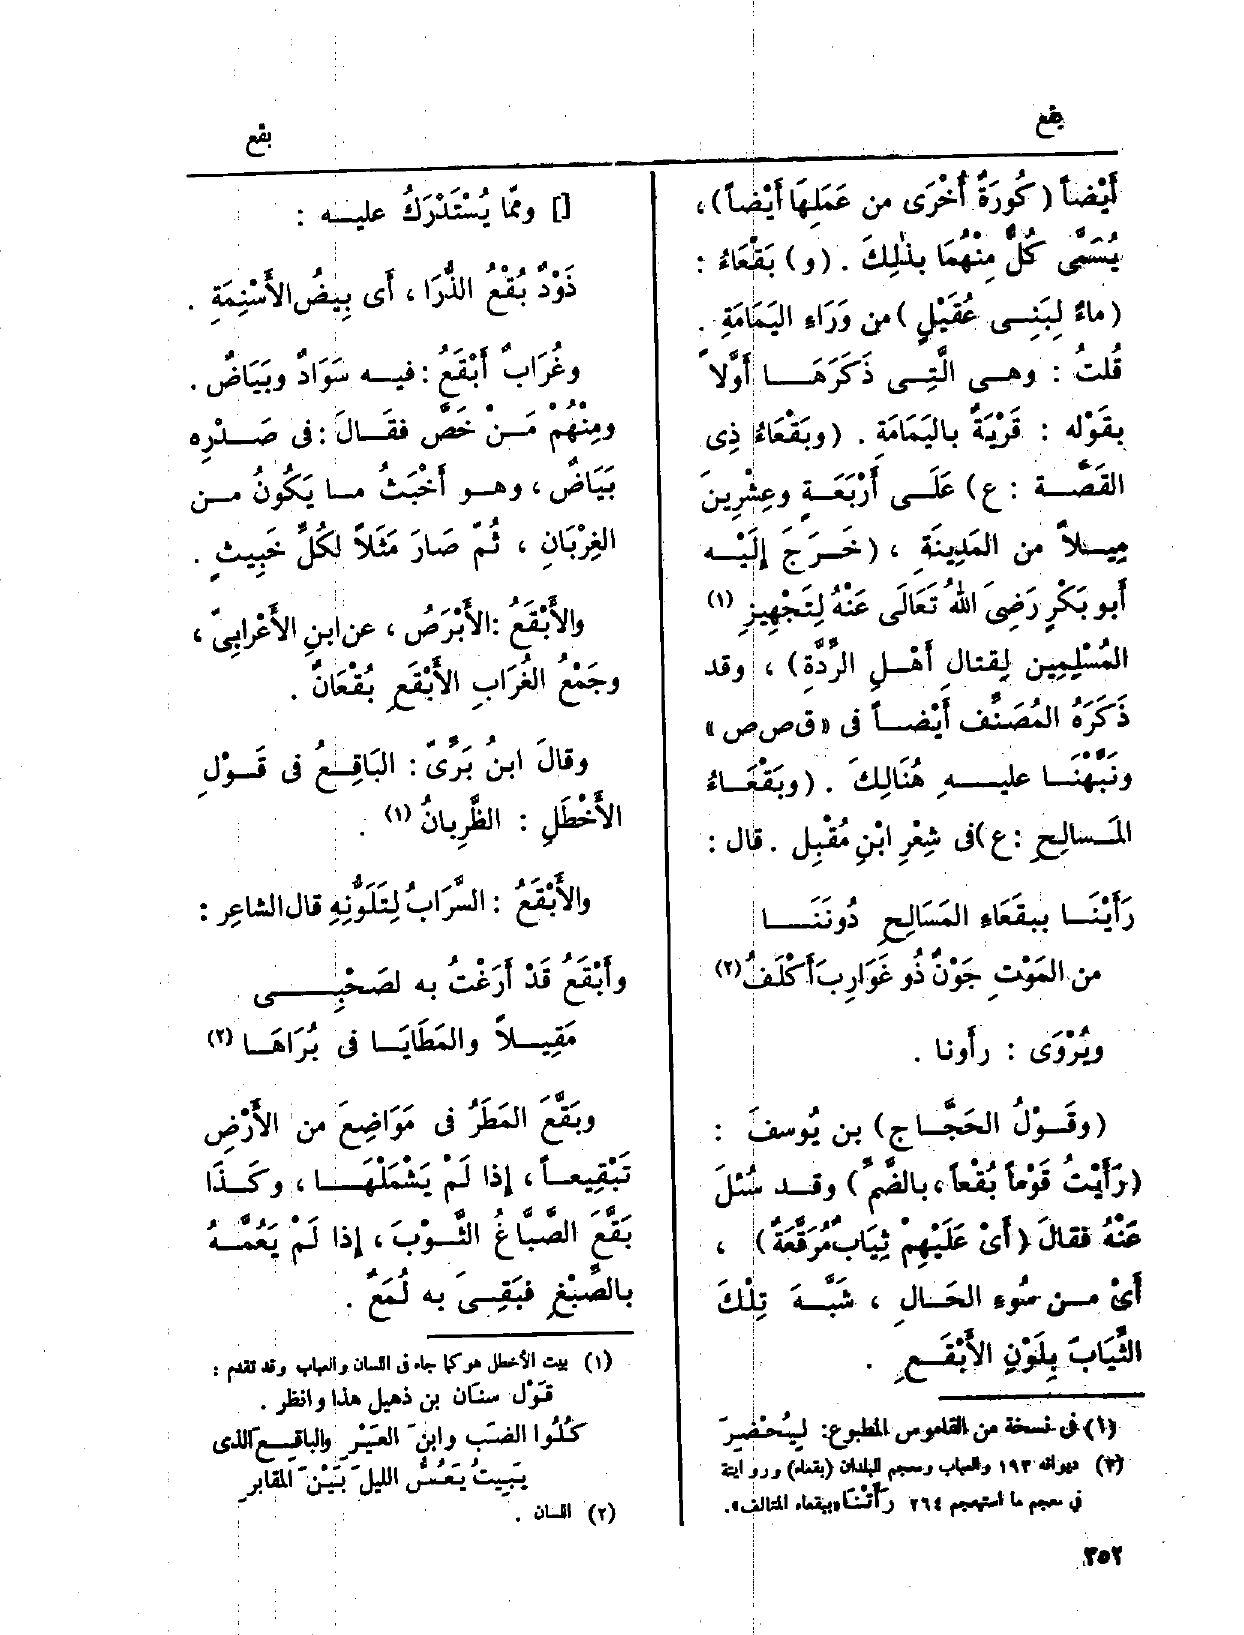 بقع
بقع
أَيْضاً (كُورَةٌ أُخْرَى من عَمَلِهَا أَيْضاً)،
يُسَمَّى كُلٌّ مِنْهُمَا بذٰلِكَ . (و) بَقْعَاءُ :
(ماءٌ لِبَنِى عُقَيْلٍ) من وَرَاءِ اليَمَامَةِ .
قُلتُ : وهى الَّتِى ذَكَرَهَا أَوَّلاً
بقَوْله : قَرْيَةٌ باليَمَامَةِ . (وبَقْعَاءُ ذِى
القَصَّة : ع) عَلَى أَرْبَعَةٍ وعِشْرِينَ
مِيلاً من المَدِينَةِ ، (خَرَجَ إِلَيْه
أبو بَكْرٍ رَضِىَ اللهُ تَعَالَى عَنْهُ لِتَجْهِيزِ (١)
المُسْلِمِين لِقتالِ أَهْلِ الرِّدَّةِ) ، وقد
ذَكَرَهُ المُصَنِّف أَيْضاً فى «ق ص ص»
ونَبَّهْنَا عليهِ هُنَالِكَ . (وبَقْعَاءُ
المَسالِحِ : ع) فى شِعْرِ ابْنِ مُقْبِل . قال :
رَأَيْنَا ببقَعَاءِ المَسَالِحِ دُونَنَا
من المَوْتِ جَوْنٌ ذُو غَوَارِبَ أَكْلَفُ (٢)
ويُرْوَى : رأَونا .
(وقَوْلُ الحَجَّاجِ) بن يُوسفَ :
(رَأَيْتُ قَوْماً بُقْعاً ، بالضَّمِّ) وقد سُئلَ
عَنْهُ فقالَ (أَىْ عَلَيْهِمْ ثِيَابٌ مُرَقَّعَةٌ) ،
أَىْ من سُوءِ الحَالِ ، شَبَّهَ تِلْكَ
الثِّيَابَ بِلَوْنِ الأَبْقَعِ .
(١) فى نسخة من القاموس المطبوع: لِيُحْضِرَ
(٢) ديوانه ١٩٣ والعباب ومعجم البلدان (بقعاء) ورواية
فى معجم ما استعجم ٢٦٤ رَأَتْنَا «ببقعاء المتالف».
٣٥٢
[] وممّا يُسْتَدْرَكُ عليه :
ذَوْدٌ بُقْعُ الذُّرَا ، أى بِيضُ الأَسْنِمَةِ .
وغُرَابٌ أَبْقَعُ : فيه سَوَادٌ وبَيَاضٌ .
ومِنْهُمْ مَنْ خَصَّ فقَالَ : فى صَدْرِه
بَيَاضٌ ، وهو أَخْبَثُ ما يَكُونُ من
الغِرْبَانِ ، ثُمّ صَارَ مَثَلاً لكُلِّ خَبِيثٍ .
والأَبْقَعُ : الأَبْرَصُ ، عن ابنِ الأَعْرابِىّ ،
وجَمْعُ الغُرَابِ الأَبْقَعِ بُقْعَانٌ .
وقالَ ابنُ بَرِّىّ : البَاقِعُ فى قَوْلِ
الأَخْطَلِ : الظَّرِبانُ (١) .
والأَبْقَعُ : السَّرَابُ لِتَلَوُّنِهِ قال الشاعِر :
وأَبْقَعُ قَدْ أَرَغْتُ به لصَحْبِى
مَقِيلاً والمَطَايَا فى بُرَاهَا (٢)
وبَقَّعَ المَطَرُ فى مَوَاضِعَ من الأَرْضِ
تَبْقِيعاً ، إذا لَمْ يَشْمَلْهَا ، وكَذَا
بَقَّعَ الصَّبَّاغُ الثَّوْبَ ، إذا لَمْ يَعُمَّهُ
بالصِّبْغِ فبَقِىَ به لُمَعٌ .
(١) بيت الأخطل هو كما جاء فى اللسان والعباب وقد تقدم :
قَوْل سنان بن ذهيل هذا وانظر .
كُلُوا الضبّ وابنَ العَيْرِ والباقِعَ الذى
يَبِيتُ يَعُسُّ الليلَ بَيْنَ المقابرِ
(٢) اللسان .